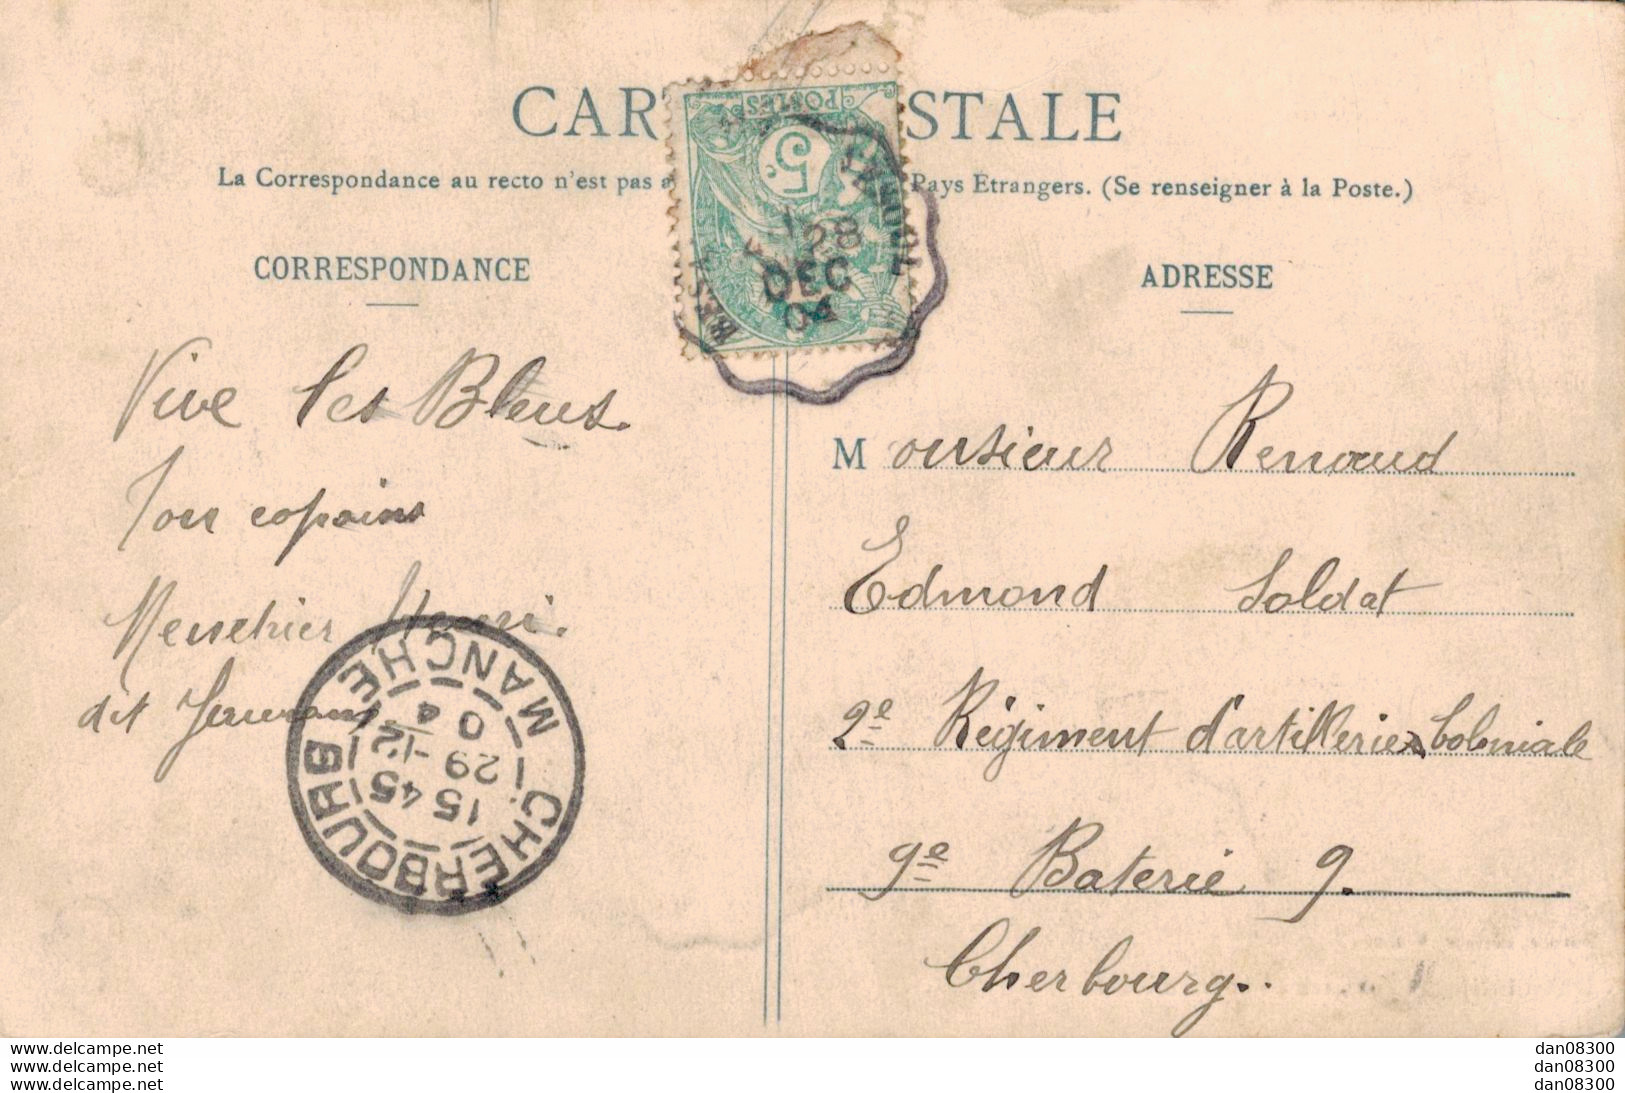 CAR STALE
La Correspondance au recto n'est pas a Pays Etrangers. (Se renseigner à la Poste.)
POSTES
5c
28
DEC
04
CORRESPONDANCE
Vive les Bleus.
Ton copains
Menchier Henri.
dit
CHERBOURG
MANCHE
15 45
29 -12
04
ADRESSE
Monsieur Renaud
Edmond Soldat
2e Régiment d'artillerie Coloniale
9e Baterie 9.
Cherbourg..
www.delcampe.net
www.delcampe.net
www.delcampe.net
dan08300
dan08300
dan08300